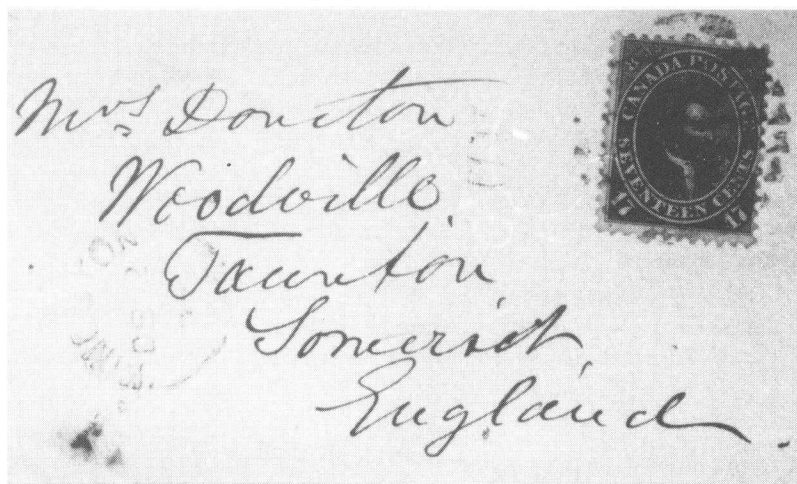 Mrs
Woodville
Taunton
Somerset
England
CANADA POSTAGE
SEVENTEEN CENTS
17 17